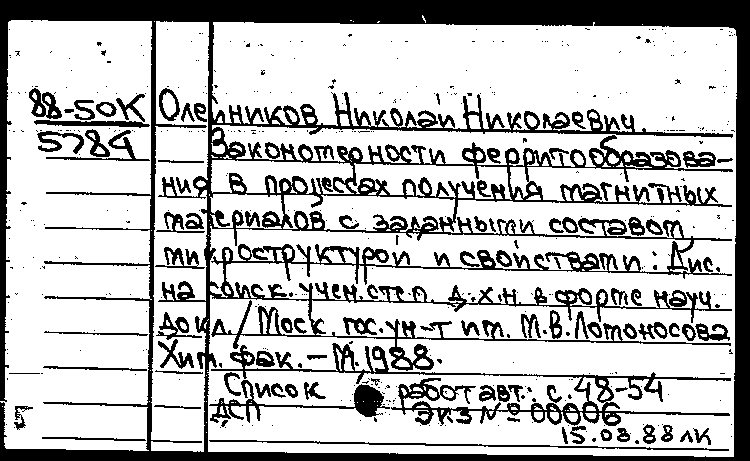 88-50К Олейников, Николай Николаевич.
5784 Закономерности ферритообразова-
ния в процессах получения магнитных
материалов с заданными составом,
микроструктурой и свойствами : Дис.
на соиск. учен. степ. д.х.н. в форме науч.
докл. / Моск. гос. ун-т им. М.В. Ломоносова
Хим. фак. - М., 1988.
Список работ авт.: с. 48-54
ДСП Экз № 00006
15.03.88 лк